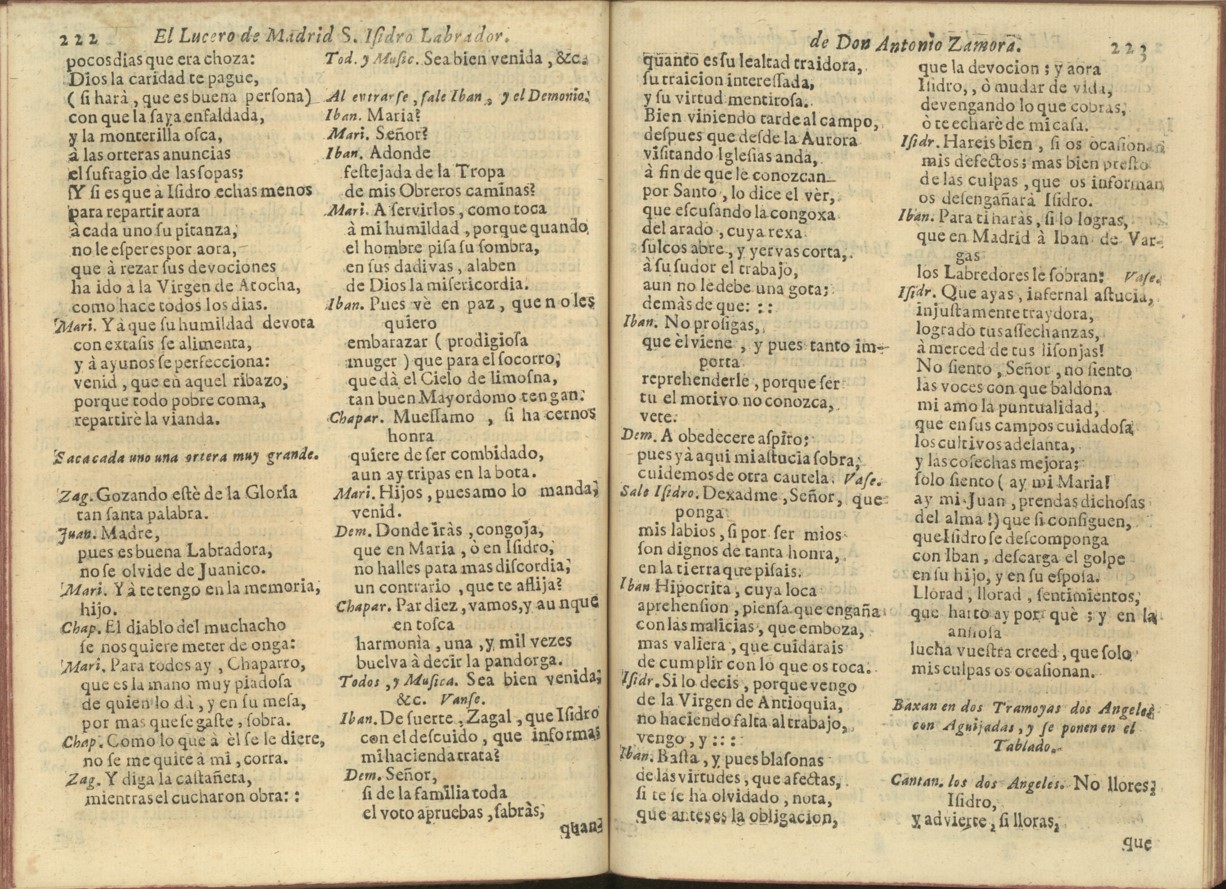 222 El Lucero de Madrid S. Isidro Labrador.
pocos dias que era choza:
Dios la caridad te pague,
( si harà , que es buena persona)
con que la saya enfaldada,
y la monterilla osca,
à las orteras anuncias
el sufragio de las sopas;
Y si es que à Isidro echas menos
para repartir aora
à cada uno su pitanza,
no le esperes por aora,
que à rezar sus devociones
ha ido à la Virgen de Atocha,
como hace todos los dias.
Mari. Yà que su humildad devota
con extasis se alimenta,
y à ayunos se perfecciona:
venid , que en aquel ribazo,
porque todo pobre coma,
repartirè la vianda.
Saca cada uno una ortera muy grande.
Zag. Gozando estè de la Gloria
tan santa palabra.
Juan. Madre,
pues es buena Labradora,
no se olvide de Juanico.
Mari. Yà te tengo en la memoria,
hijo.
Chap. El diablo del muchacho
se nos quiere meter de onga:
Mari. Para todos ay , Chaparro,
que es la mano muy piadosa
de quien lo dà , y en su mesa,
por mas que se gaste , sobra.
Chap. Como lo que à èl se le diere,
no se me quite à mi , corra.
Zag. Y diga la castañeta,
mientras el cucharon obra: :
Tod. y Music. Sea bien venida , &c.
Al entrarse , sale Iban , y el Demonio.
Iban. Maria?
Mari. Señor?
Iban. Adonde
festejada de la Tropa
de mis Obreros caminas?
Mari. A servirlos , como toca
à mi humildad , porque quando
el hombre pisa su sombra,
en sus dadivas , alaben
de Dios la misericordia.
Iban. Pues vè en paz , que no les
quiero
embarazar ( prodigiosa
muger ) que para el socorro,
que dà el Cielo de limosna,
tan buen Mayordomo tengan.
Chapar. Muessamo , si ha cernos
honra
quiere de ser combidado,
aun ay tripas en la bota.
Mari. Hijos , pues amo lo manda,
venid.
Dem. Donde iràs , congoja,
que en Maria , ò en Isidro,
no halles para mas discordia,
un contrario , que te aflija?
Chapar. Par diez , vamos, y aunque
en tosca
harmonia , una , y mil vezes
buelva à decir la pandorga.
Todos , y Musica. Sea bien venida,
&c. Vanse.
Iban. De suerte , Zagal , que Isidro
con el descuido , que informas
mi hacienda trata?
Dem. Señor,
si de la familia toda
el voto apruebas , sabràs,
quan-
de Don Antonio Zamora. 223
quanto es su lealtad traidora,
su traicion interessada,
y su virtud mentirosa.
Bien viniendo tarde al campo,
despues que desde la Aurora
visitando Iglesias anda,
à fin de que le conozcan
por Santo , lo dice el vèr,
que escusando la congoxa
del arado , cuya rexa
sulcos abre , y yervas corta,
à su sudor el trabajo,
aun no le debe una gota;
demàs de que: : :
Iban. No prosigas,
que èl viene , y pues tanto im-
porta
reprehenderle , porque ser
tu el motivo no conozca,
vete.
Dem. A obedecere aspiro;
pues yà aqui mi astucia sobra,
cuidemos de otra cautela. Vase.
Sale Isidro. Dexadme , Señor, que
ponga
mis labios , si por ser mios
son dignos de tanta honra,
en la tierra que pisais.
Iban Hipocrita , cuya loca
aprehension , piensa que engaña
con las malicias , que emboza,
mas valiera , que cuidarais
de cumplir con lo que os toca.
Isidr. Si lo decis , porque vengo
de la Virgen de Antioquia,
no haciendo falta al trabajo,
vengo , y : : :
Iban. Basta , y pues blasonas
de las virtudes , que afectas,
si te se ha olvidado , nota,
que antes es la obligacion,
que la devocion ; y aora
Isidro, , ò mudar de vida,
devengando lo que cobras,
ò te echarè de mi casa.
Isidr. Hareis bien , si os ocasionan
mis defectos ; mas bien presto
de las culpas , que os informan
os desengañarà Isidro.
Iban. Para ti haràs , si lo logras,
que en Madrid à Iban de Var-
gas
los Labredores le sobran: Vase.
Isidr. Que ayas , infernal astucia,
injustamente traydora,
logrado tus assechanzas,
à merced de tus lisonjas!
No siento , Señor , no siento
las voces con que baldona
mi amo la puntualidad,
que en sus campos cuidadosa
los cultivos adelanta,
y las cosechas mejora;
solo siento ( ay mi Maria!
ay mi Juan , prendas dichosas
del alma !) que si consiguen,
que Isidro se descomponga
con Iban , descarga el golpe
en su hijo, y en su esposa.
Llorad , llorad , sentimientos,
que harto ay por què ; y en la
ansiosa
lucha vuestra creed , que solo
mis culpas os ocasionan.
Baxan en dos Tramoyas dos Angeles
con Aguijadas , y se ponen en el
Tablado.
Cantan. los dos Angeles. No llores,
Isidro,
y advierte , si lloras,
que